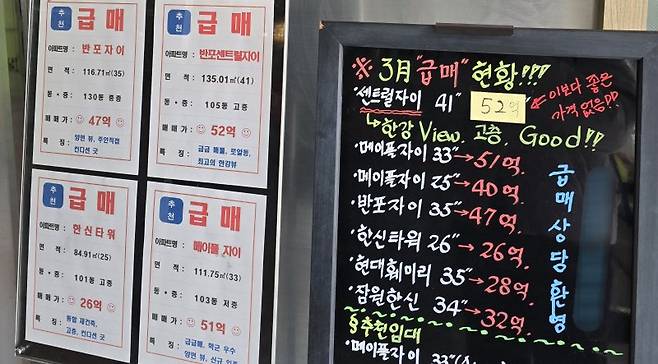 추천 급매
아파트명 : 반포자이
면 적 : 116.71㎡(35)
동 • 층 : 130동 중층
매 매 가 : 47억
특 징 : 양면 뷰, 주인직접
컨디션 굿
추천 급매
아파트명 : 반포센트럴자이
면 적 : 135.01㎡(41)
동 • 층 : 105동 고층
매 매 가 : 52억
특 징 : 급급 매물, 로얄동,
최고의 한강뷰
추천 급매
아파트명 : 한신타워
면 적 : 84.91㎡(25)
동 • 층 : 101동 고층
매 매 가 : 26억
특 징 : 통합 재건축,
고층, 컨디션 굿
추천 급매
아파트명 : 메이플 자이
면 적 : 111.75㎡(33)
동 • 층 : 103동 저층
매 매 가 : 51억
특 징 : 급급매, 학군 우수
양면 뷰, 신규
※ 3月 "급매" 현황!!!
센트럴자이 41" 52억 ← 이보다 좋은
가격 없음!?
↳한강 View, 고층, Good!!
•메이플자이 33" → 51억.
•메이플자이 25" → 40억.
•반포자이 35" → 47억.
•한신타워 26" → 26억.
•현대훼미리 35" → 28억.
•잠원한신 34" → 32억.
급매상담환영
§추천임대
•메이플자이 33"